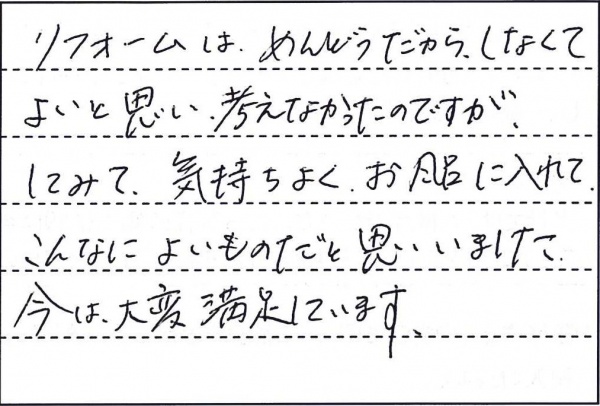 リフォームは、めんどうだから、しなくて
よいと思い、考えなかったのですが、
してみて、気持ちよく、お風呂に入れて、
こんなによいものだと思いいました、
今は、大変満足しています、